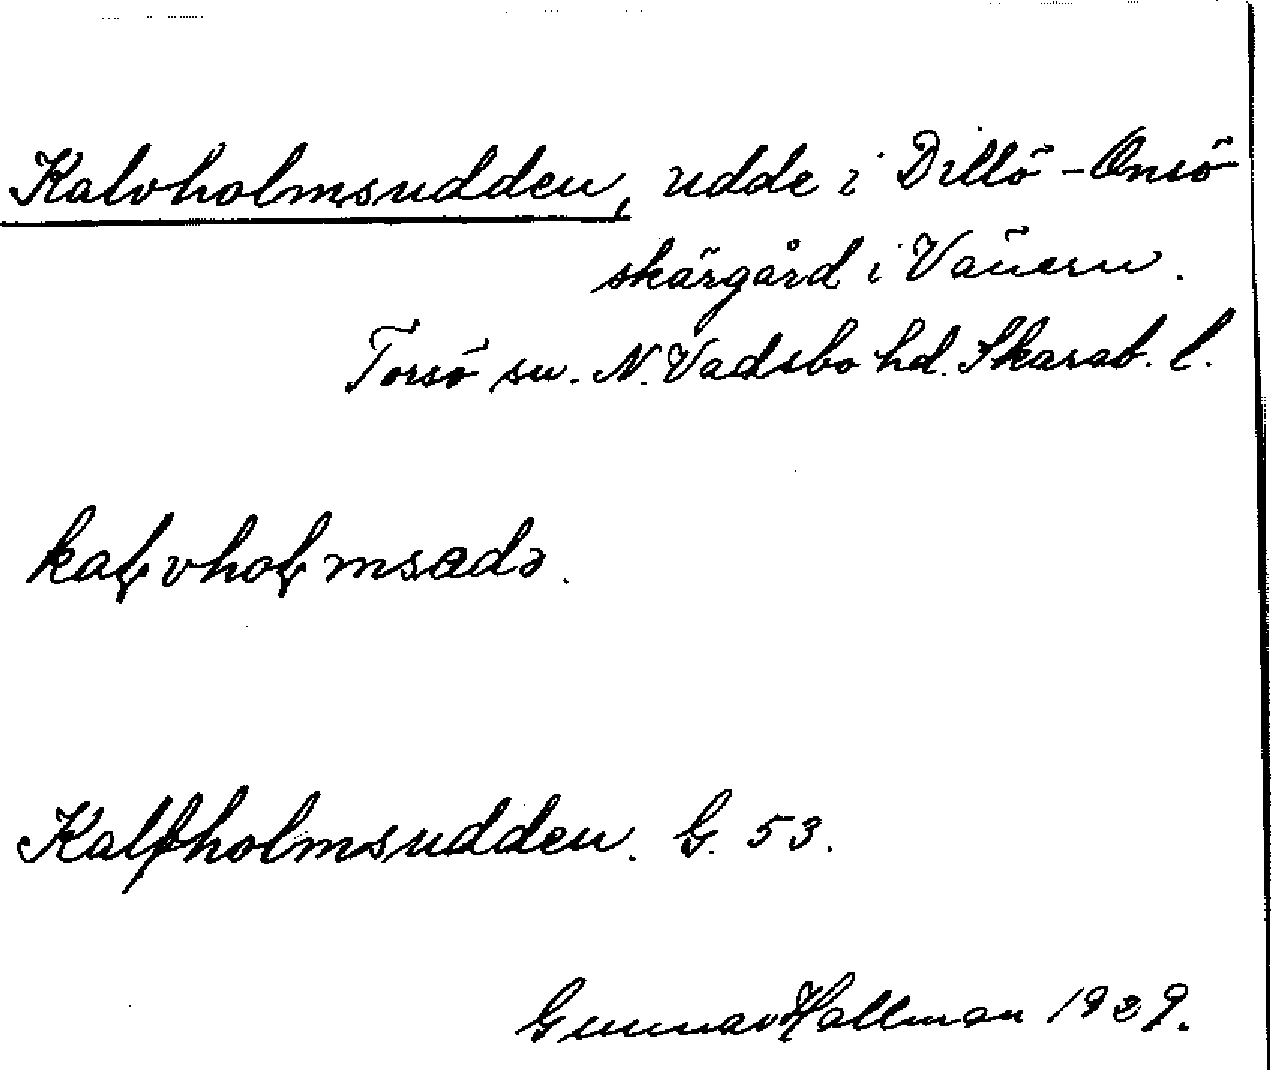 Kalvholmsudden, udde i Dillö-Onsö
skärgård i Vänern.
Torsö sn. N. Vadsbo hd. Skarab. l.
kaɽvhoɽmsɷdə.
Kalfholmsudden. G. 53.
Gunnar Hallman 1929.